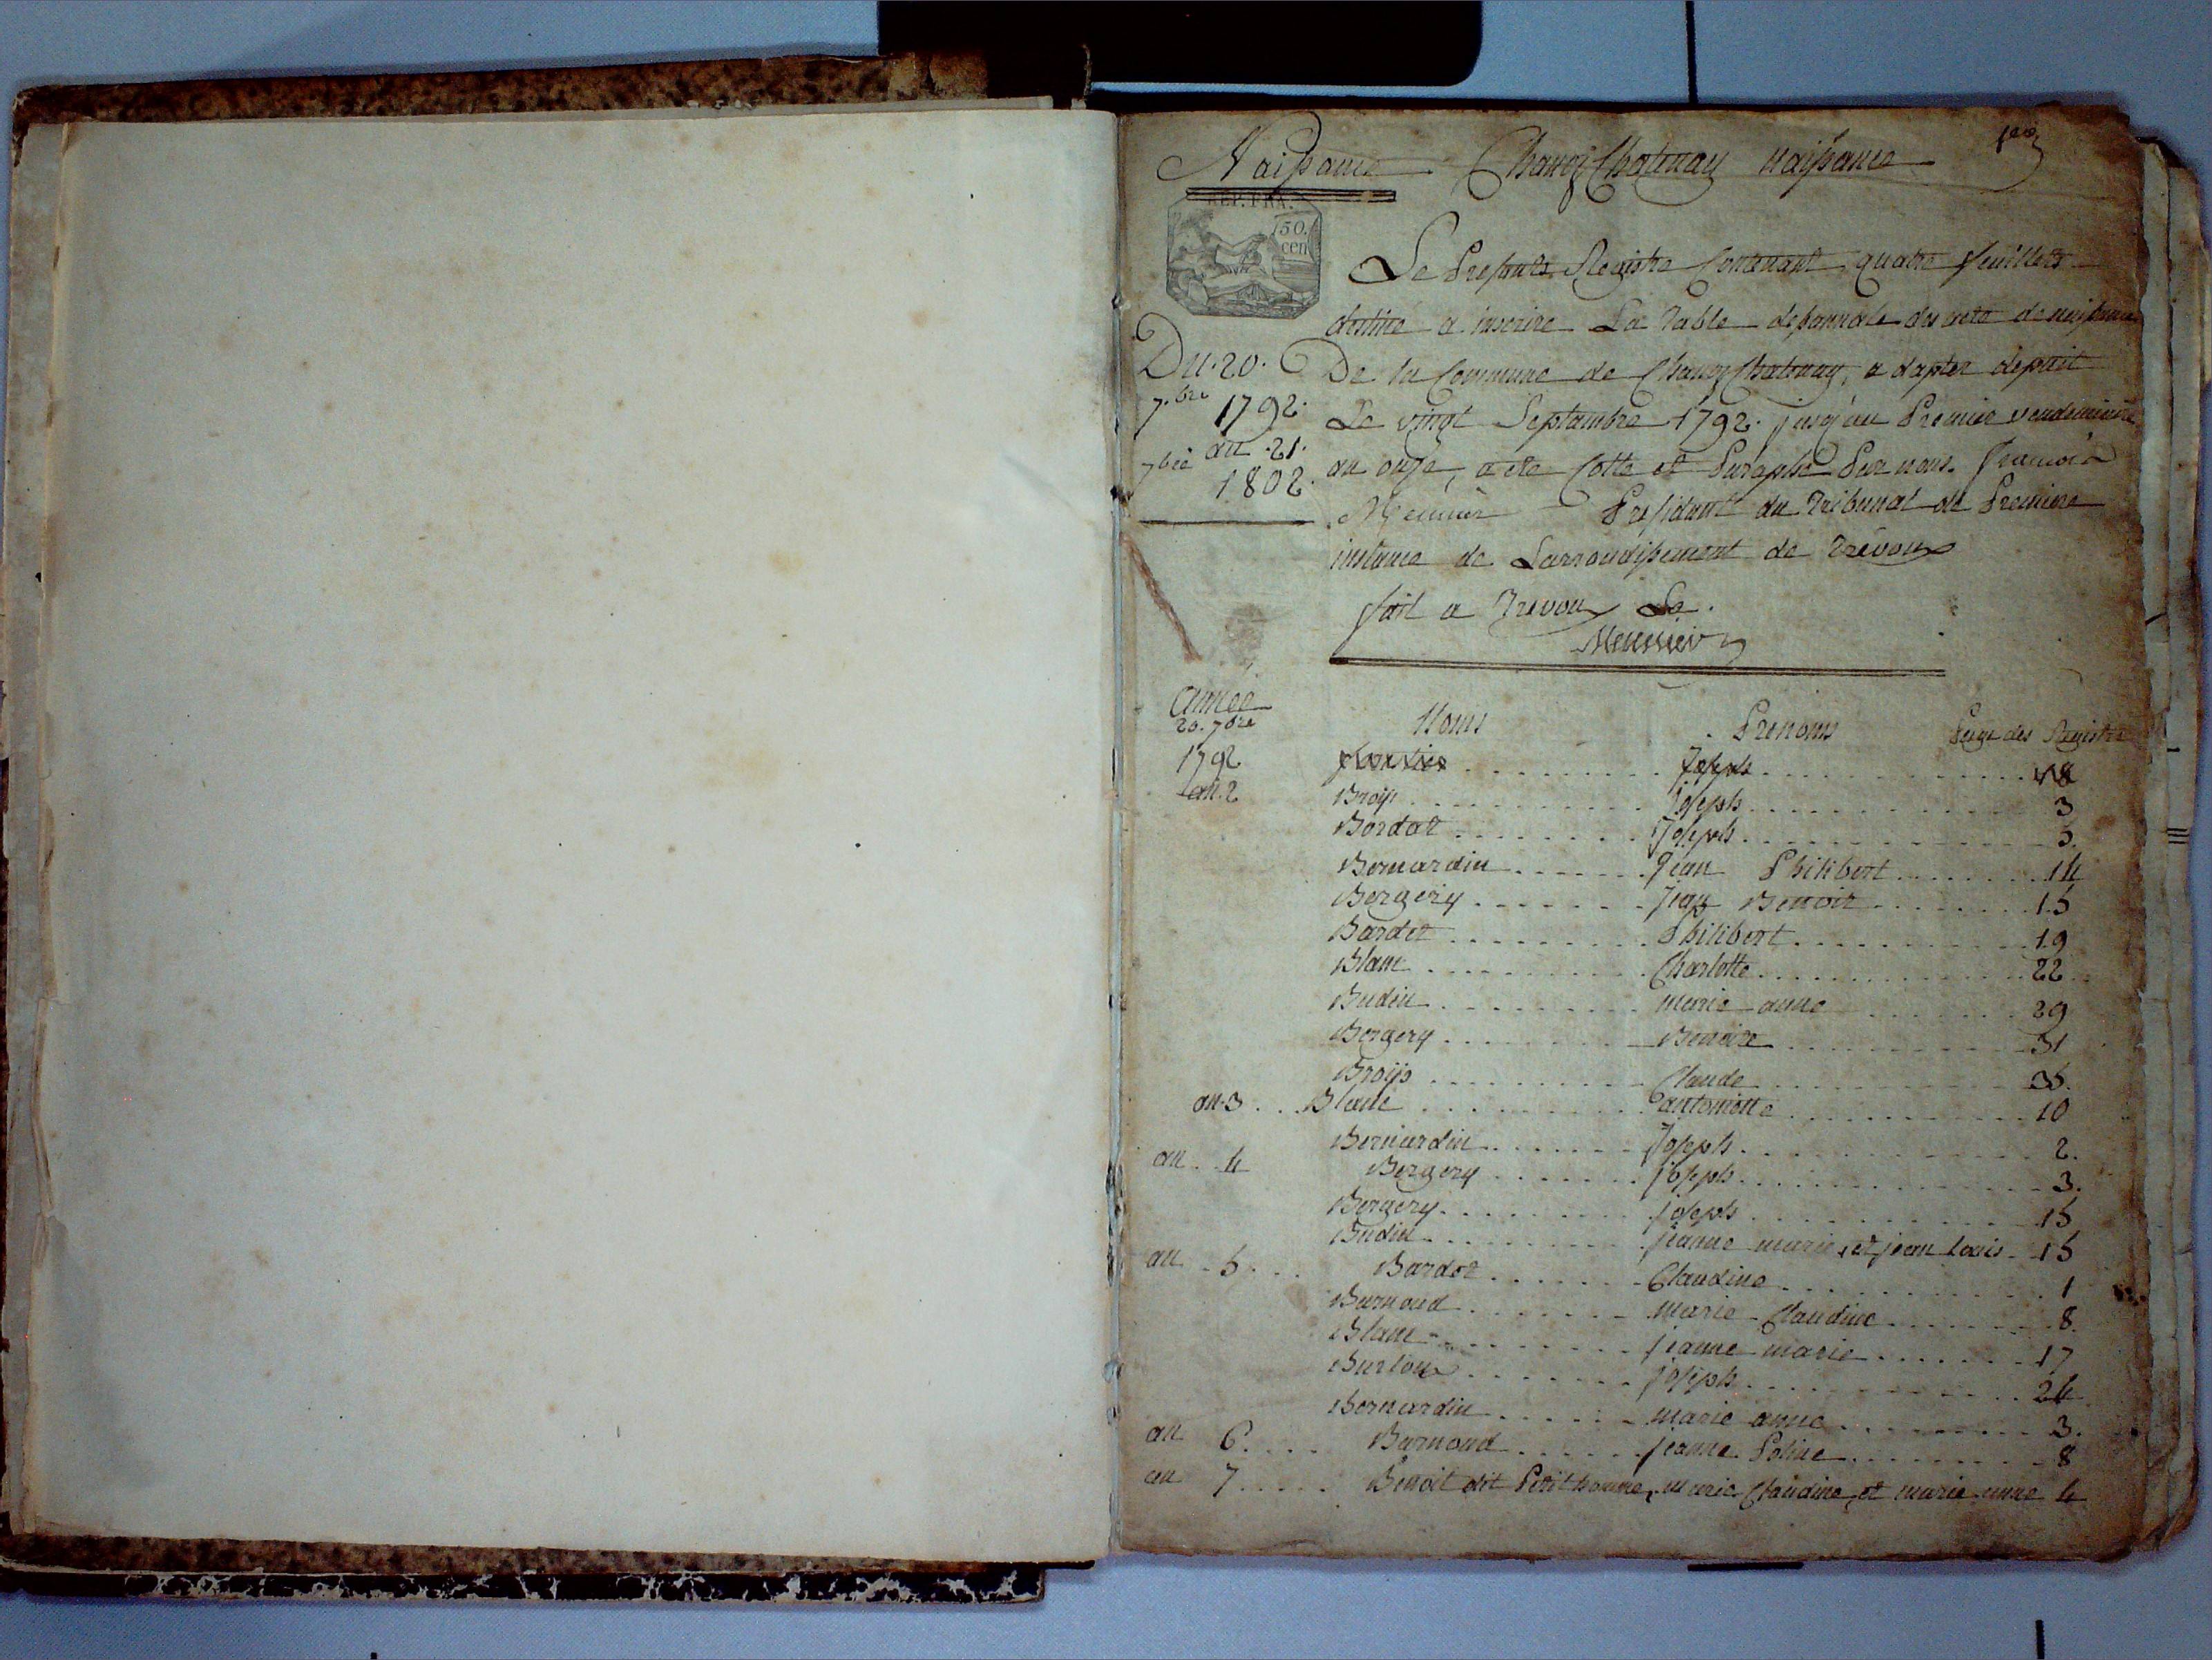 Naissance Chanoz Chatenay naissance
REP. FRA.
50.
cen
Le Presents Registre Contenant quatre feuillets
destine a inscrire La Table desannale des acte de naissance
Du. 20. 7.bre 1792. au 21. 7bre 1802.
De la Commune de Chanoz Chatenay, a dapter depuit
Le vingt Septambre 1792. jusqu'au Premier vendemiaire
an onze, a ete Cotte et Paraphé Par nous. francois
Meunier Presidant du Tribunal de Premiere
instance de Larrondissement de Trevoux
fait a Trevoux Le.
Meunier
Année Noms Prenoms Page des Registre
20. 7bre
1792 Joseph 18
an. 2 Broys Joseph 3
Bordat Joseph 5.
Bernardin Jean Philibert 14
Bergery Jean Benoit 15
Bardet Philibert 19
Blanc Charlotte 22
Budin marie anne 29
Bergery Benoite 31
Broys Claude 35.
an. 3 Blanc antoinette 10
Bernardin Joseph 2.
an 4 Bergery joseph 3.
Bergery joseph 15
Budin jeanne marie, et jean Louis 15
an 5 Bardot Claudine 1
Burnoud marie Claudine 8.
Blanc jeanne marie 17
Burlon joseph 24
Bernardin marie anne 3.
an 6 Burnoud jeanne Poline 8
an 7 Benoit dit Petit homme, marie Claudine, et marie anne 4